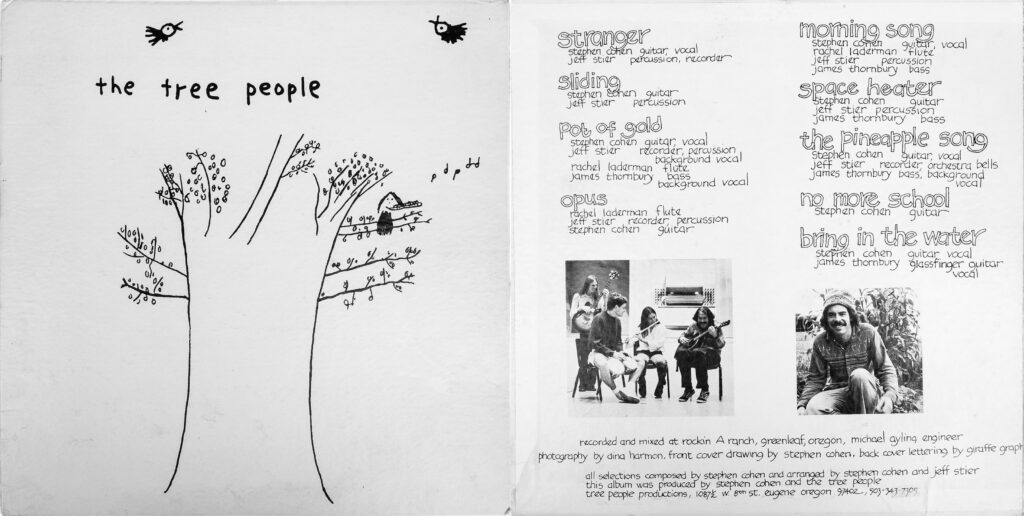 the tree people
stranger
stephen cohen guitar, vocal
jeff stier percussion, recorder
sliding
stephen cohen guitar
jeff stier percussion
pot of gold
stephen cohen guitar, vocal
jeff stier recorder, percussion
background vocal
rachel laderman flute
james thornbury bass
background vocal
opus
rachel laderman flute
jeff stier recorder, percussion
stephen cohen guitar
morning song
stephen cohen guitar, vocal
rachel laderman flute
jeff stier percussion
james thornbury bass
space heater
stephen cohen guitar
jeff stier percussion
james thornbury bass
the pineapple song
stephen cohen guitar, vocal
jeff stier recorder, orchestra bells
james thornbury bass, background
vocal
no more school
stephen cohen guitar
bring in the water
stephen cohen guitar vocal
james thornbury glassfinger guitar
vocal
recorded and mixed at rockin A ranch, greenleaf, oregon, michael ayling engineer
photography by dina harmon, front cover drawing by stephen cohen, back cover lettering by giraffe graph
all selections composed by stephen cohen and arranged by stephen cohen and jeff stier
this album was produced by stephen cohen and the tree people
tree people productions, w. 8th st. eugene oregon 97402, 503-343-7305